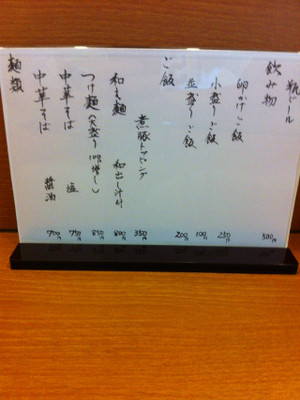 麺類
中華そば 醤油 700円
中華そば 塩 750円
つけ麺(大盛り100増し) 850円
和え麺 和出し汁付 800円
煮豚トッピング 350円
ご飯
並盛りご飯 200円
小盛りご飯 100円
卵かけご飯 250円
飲み物
瓶ビール 500円